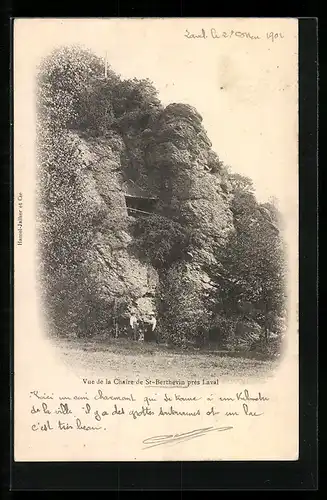 Laval, le 2 1901
Hamel-Jallier et Cie
Vue de la Chaire de St-Berthevin près Laval
Voici un coin charmant qui se trouve à un Kilomètre
de la ville il y a des grottes souterraines et un lac
c'est très beau.